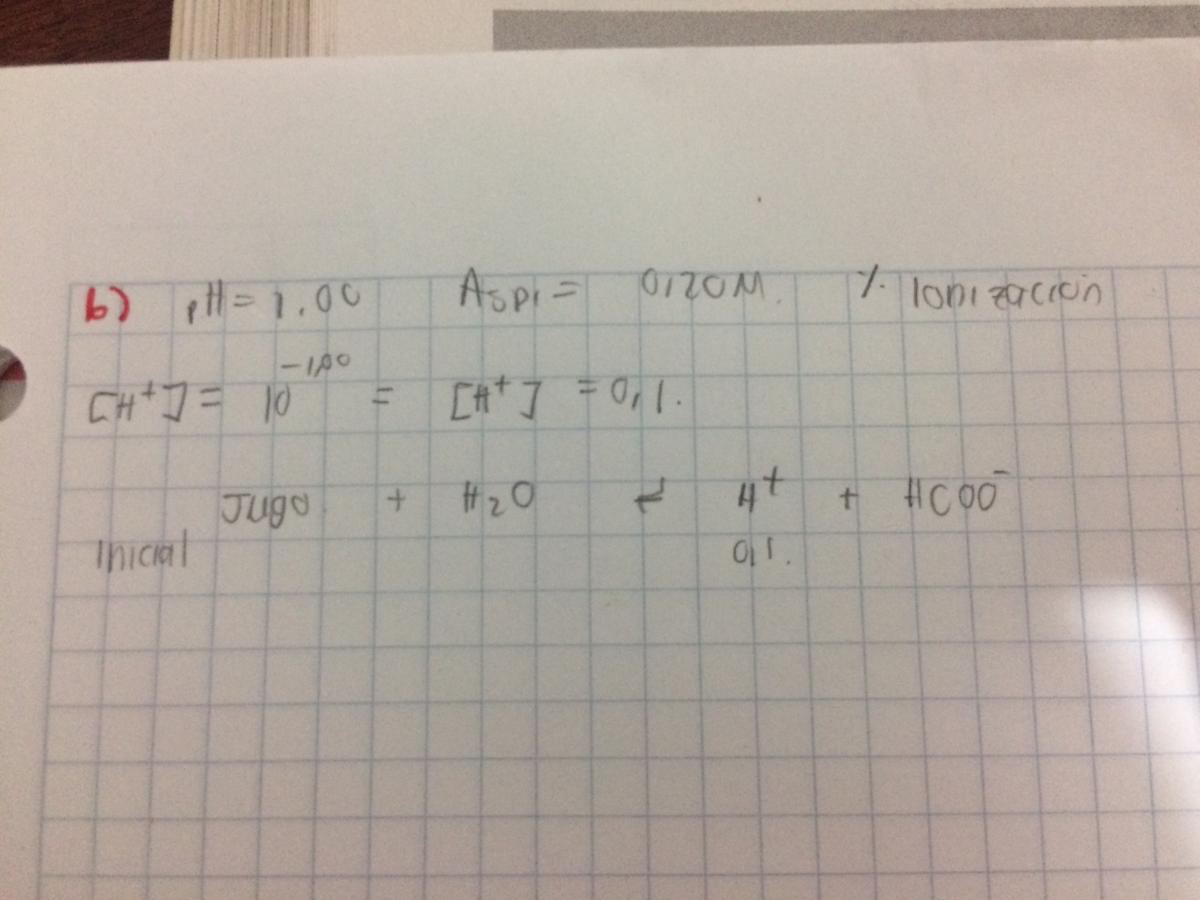 b) pH = 1.00 Aspi = 0,20M. % Ionización
[H⁺] = 10⁻¹·⁰⁰ = [H⁺] = 0,1.
Jugo + H₂O ⇌ H⁺ + HCOO⁻
Inicial 0,1.